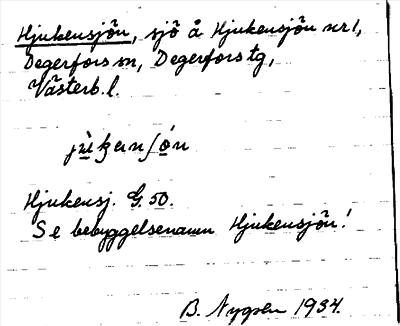 Hjukensjön, sjö å Hjukensjön nr 1,
Degerfors sn, Degerfors tg,
Västerb. l.
Hjukensj. G. 50.
Se bebyggelsenamn Hjukensjön!
B. Nygren 1934.